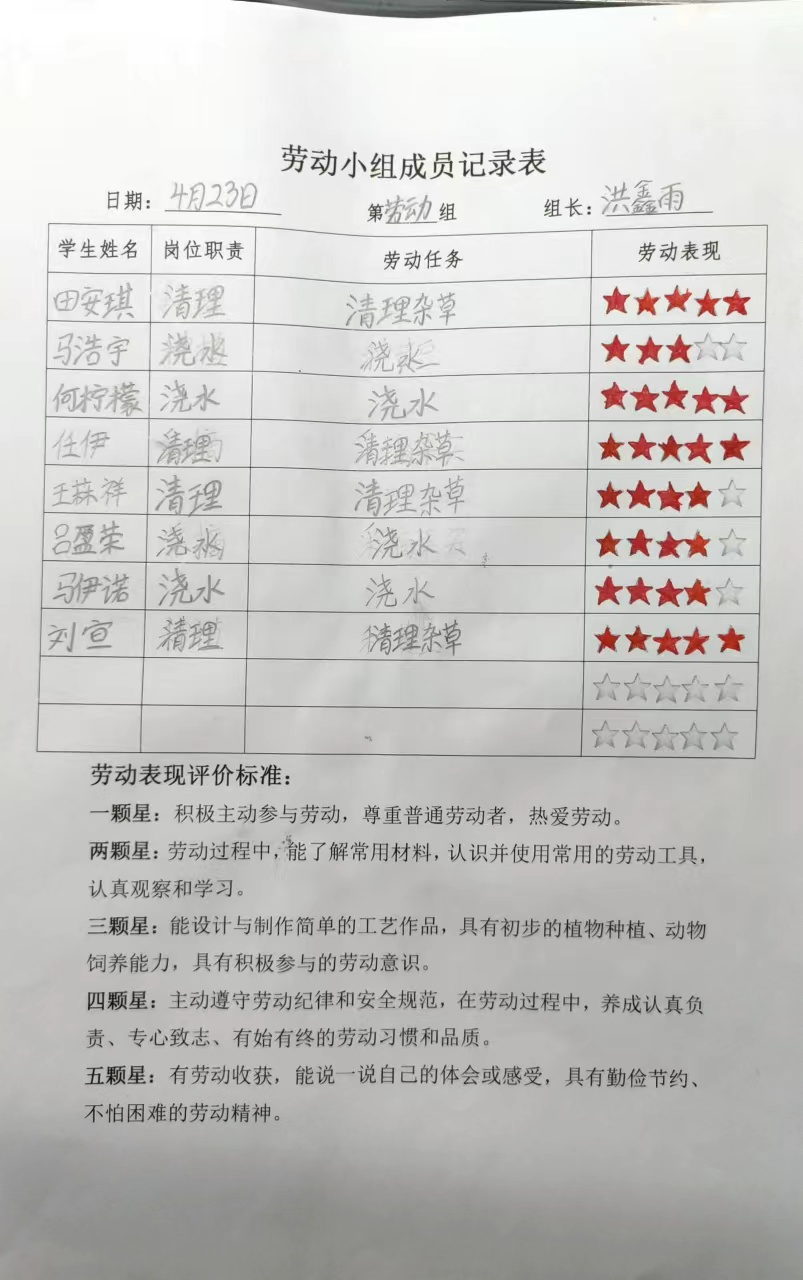 劳动小组成员记录表
日期：4月23日 第劳动组 组长：洪鑫雨
学生姓名 岗位职责 劳动任务 劳动表现
田安琪 清理 清理杂草 ★★★★★
马浩宇 浇水 浇水 ★★★☆☆
何柠檬 浇水 浇水 ★★★★★
任伊 清理 清理杂草 ★★★★★
王菻祥 清理 清理杂草 ★★★★☆
吕盈荣 浇水 浇水 ★★★★☆
马伊诺 浇水 浇水 ★★★★☆
刘宣 清理 清理杂草 ★★★★★
☆☆☆☆☆
☆☆☆☆☆
劳动表现评价标准：
一颗星：积极主动参与劳动，尊重普通劳动者，热爱劳动。
两颗星：劳动过程中，能了解常用材料，认识并使用常用的劳动工具，
认真观察和学习。
三颗星：能设计与制作简单的工艺作品，具有初步的植物种植、动物
饲养能力，具有积极参与的劳动意识。
四颗星：主动遵守劳动纪律和安全规范，在劳动过程中，养成认真负
责、专心致志、有始有终的劳动习惯和品质。
五颗星：有劳动收获，能说一说自己的体会或感受，具有勤俭节约、
不怕困难的劳动精神。